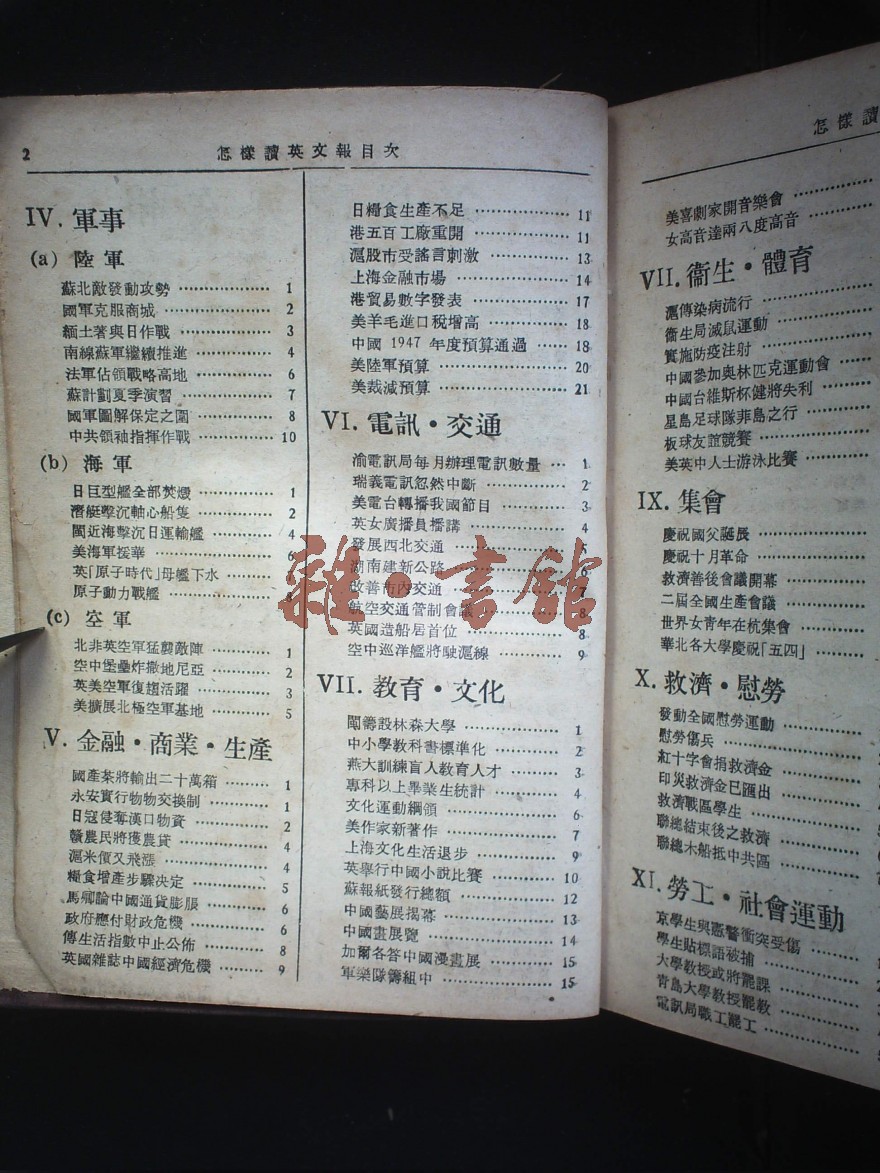 2 怎樣讀英文報目次
IV. 軍事
(a) 陸軍
蘇北敵發動攻勢 ………… 1
國軍克服商城 ………… 2
緬土著與日作戰 ………… 3
南線蘇軍繼續推進 ………… 4
法軍佔領戰略高地 ………… 6
蘇計劃夏季演習 ………… 7
國軍圖解保定之圍 ………… 8
中共領袖指揮作戰 ………… 10
(b) 海軍
日巨型艦全部焚燬 ………… 1
潛艇擊沉軸心船隻 ………… 2
閩近海擊沉日運輸艦 ………… 4
美海軍援華 ………… 6
英「原子時代」母艦下水 ………… 6
原子動力戰艦 …………
(c) 空軍
北非英空軍猛襲敵陣 ………… 1
空中堡壘炸撒地尼亞 ………… 2
英美空軍復趨活躍 ………… 3
美擴展北極空軍基地 ………… 5
V. 金融·商業·生產
國產茶將輸出二十萬箱 ………… 1
永安實行物物交換制 ………… 1
日寇侵奪漢口物資 ………… 2
贛農民將獲農貸 ………… 4
滬米價又飛漲 ………… 4
糧食增產步驟決定 ………… 5
馬卿論中國通貨膨脹 ………… 6
政府應付財政危機 ………… 6
傳生活指數中止公佈 ………… 8
英國雜誌中國經濟危機 ………… 9
日糧食生產不足 ………… 11
港五百工廠重開 ………… 11
滬股市受謠言刺激 ………… 13
上海金融市場 ………… 14
港貿易數字發表 ………… 17
美羊毛進口稅增高 ………… 18
中國 1947 年度預算通過 ………… 18
美陸軍預算 ………… 20
美裁減預算 ………… 21
VI. 電訊·交通
渝電訊局每月辦理電訊數量 … 1
瑞義電訊忽然中斷 ………… 2
美電台轉播我國節目 ………… 3
英女廣播員播講 ………… 4
發展西北交通 ………… 5
湖南建新公路 ………… 6
改善市內交通 ………… 7
航空交通管制會議 ………… 8
英國造船居首位 ………… 8
空中巡洋艦將駛滬線 ………… 9
VII. 教育·文化
閩籌設林森大學 ………… 1
中小學教科書標準化 ………… 2
燕大訓練盲人教育人才 ………… 3
專科以上畢業生統計 ………… 4
文化運動綱領 ………… 6
美作家新著作 ………… 7
上海文化生活退步 ………… 9
英舉行中國小說比賽 ………… 10
蘇報紙發行總額 ………… 12
中國藝展揭幕 ………… 13
中國畫展覽 ………… 14
加爾各答中國漫畫展 ………… 15
軍樂隊籌組中 ………… 15
雜·書館
怎樣讀
美喜劇家開音樂會 …………
女高音達兩八度高音 …………
VII. 衞生·體育
滬傳染病流行 …………
衞生局滅鼠運動 …………
實施防疫注射 …………
中國參加奧林匹克運動會 …………
中國台維斯杯健將失利 …………
星島足球隊菲島之行 …………
板球友誼競賽 …………
美英中人士游泳比賽 …………
IX. 集會
慶祝國父誕辰 …………
慶祝十月革命 …………
救濟善後會議開幕 …………
二屆全國生產會議 …………
世界女青年在杭集會 …………
華北各大學慶祝「五四」 …………
X. 救濟·慰勞
發動全國慰勞運動 …………
慰勞傷兵 …………
紅十字會捐救濟金 …………
印災救濟金已匯出 …………
救濟戰區學生 …………
聯總結束後之救濟 …………
聯總木船抵中共區 …………
XI. 勞工·社會運動
京學生與憲警衝突受傷 …………
學生貼標語被捕 …………
大學教授或將罷課 …………
青島大學教授罷教 …………
電訊局職工罷工 …………